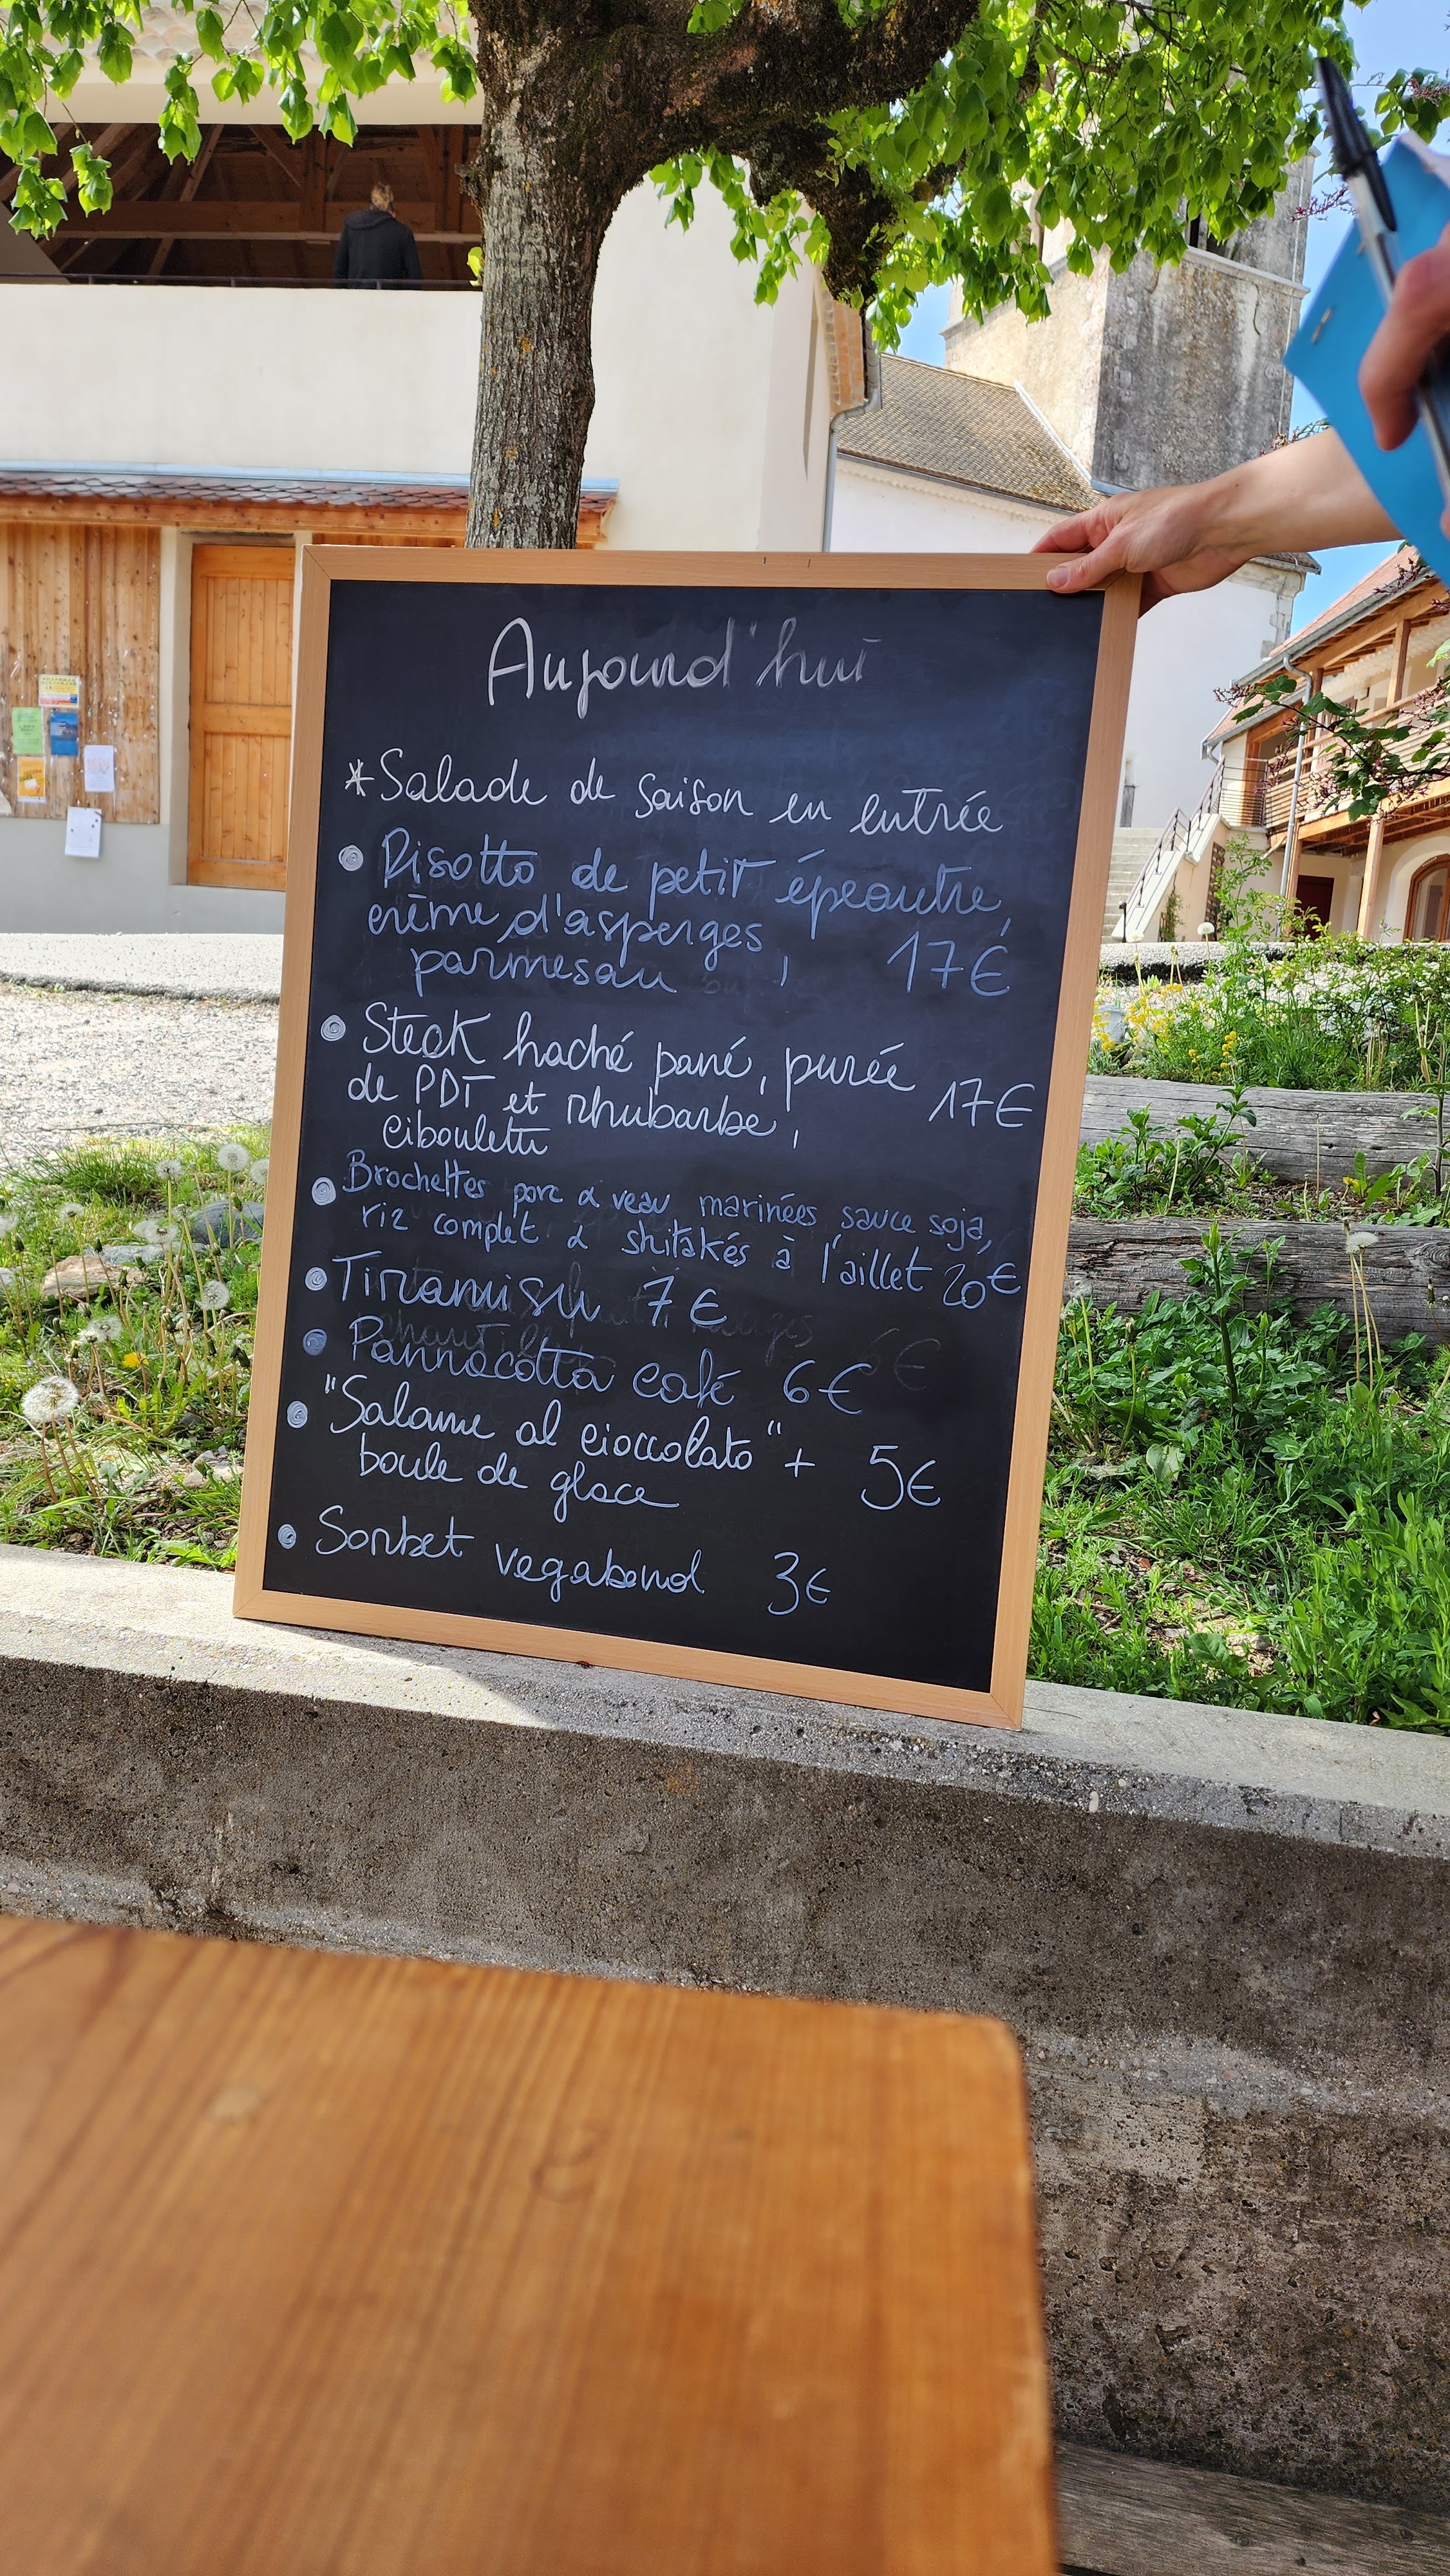 Aujourd'hui
*Salade de saison en entrée
Risotto de petit épeautre,
crème d'asperges
parmesan, 17€
Steak haché pané, purée
de PDT et rhubarbe, 17€
ciboulette
Brochettes porc & veau marinées sauce soja,
riz complet & shitakés à l'aillet 20€
Tiramisu 7€
Pannacotta café 6€
"Salame al cioccolato" + 5€
boule de glace
Sorbet vegabond 3€